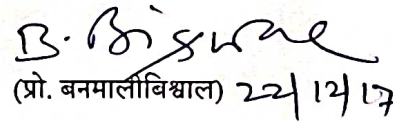 B. Biswal
(प्रो. बनमालीबिश्वाल) 22/12/17